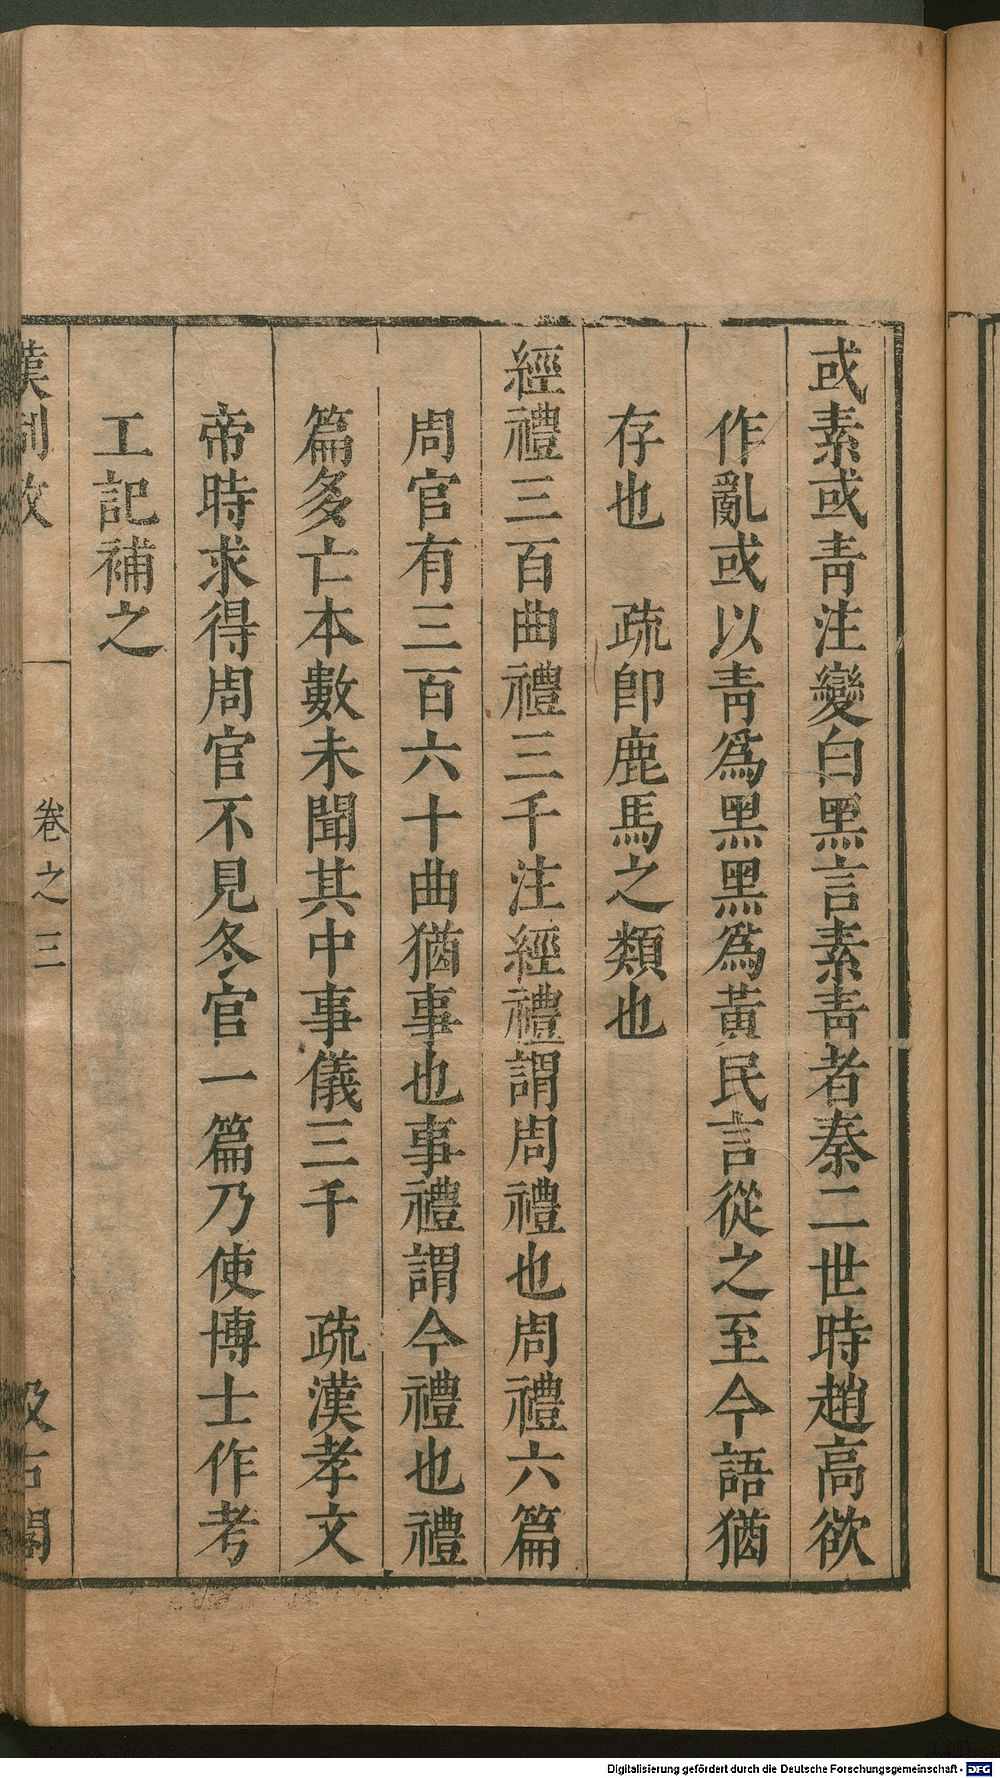 或素或青注變白黑言素青者秦二世時趙高欲
作亂或以青爲黑黑爲黃民言從之至今語猶
存也　疏卽鹿馬之類也
經禮三百曲禮三千注經禮謂周禮也周禮六篇
周官有三百六十曲猶事也事禮謂今禮也禮
篇多亡本數未聞其中事儀三千　疏漢孝文
帝時求得周官不見冬官一篇乃使博士作考
工記補之
漢制攷
卷之三
汲古閣
Digitalisierung gefördert durch die Deutsche Forschungsgemeinschaft - DFG